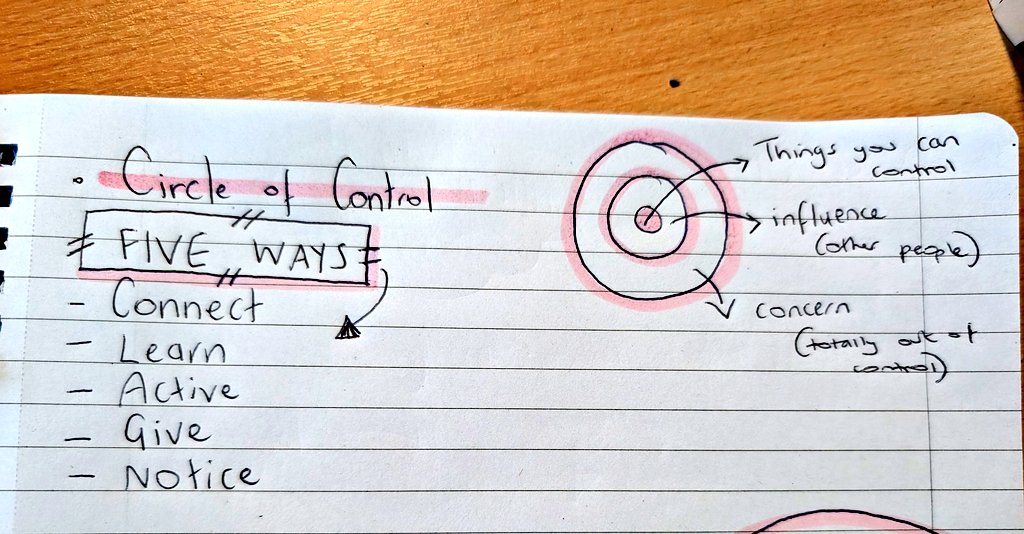 • Circle of Control
FIVE WAYS
- Connect
- Learn
- Active
- Give
- Notice
Things you can
control
influence
(other people)
concern
(totally out of
control)